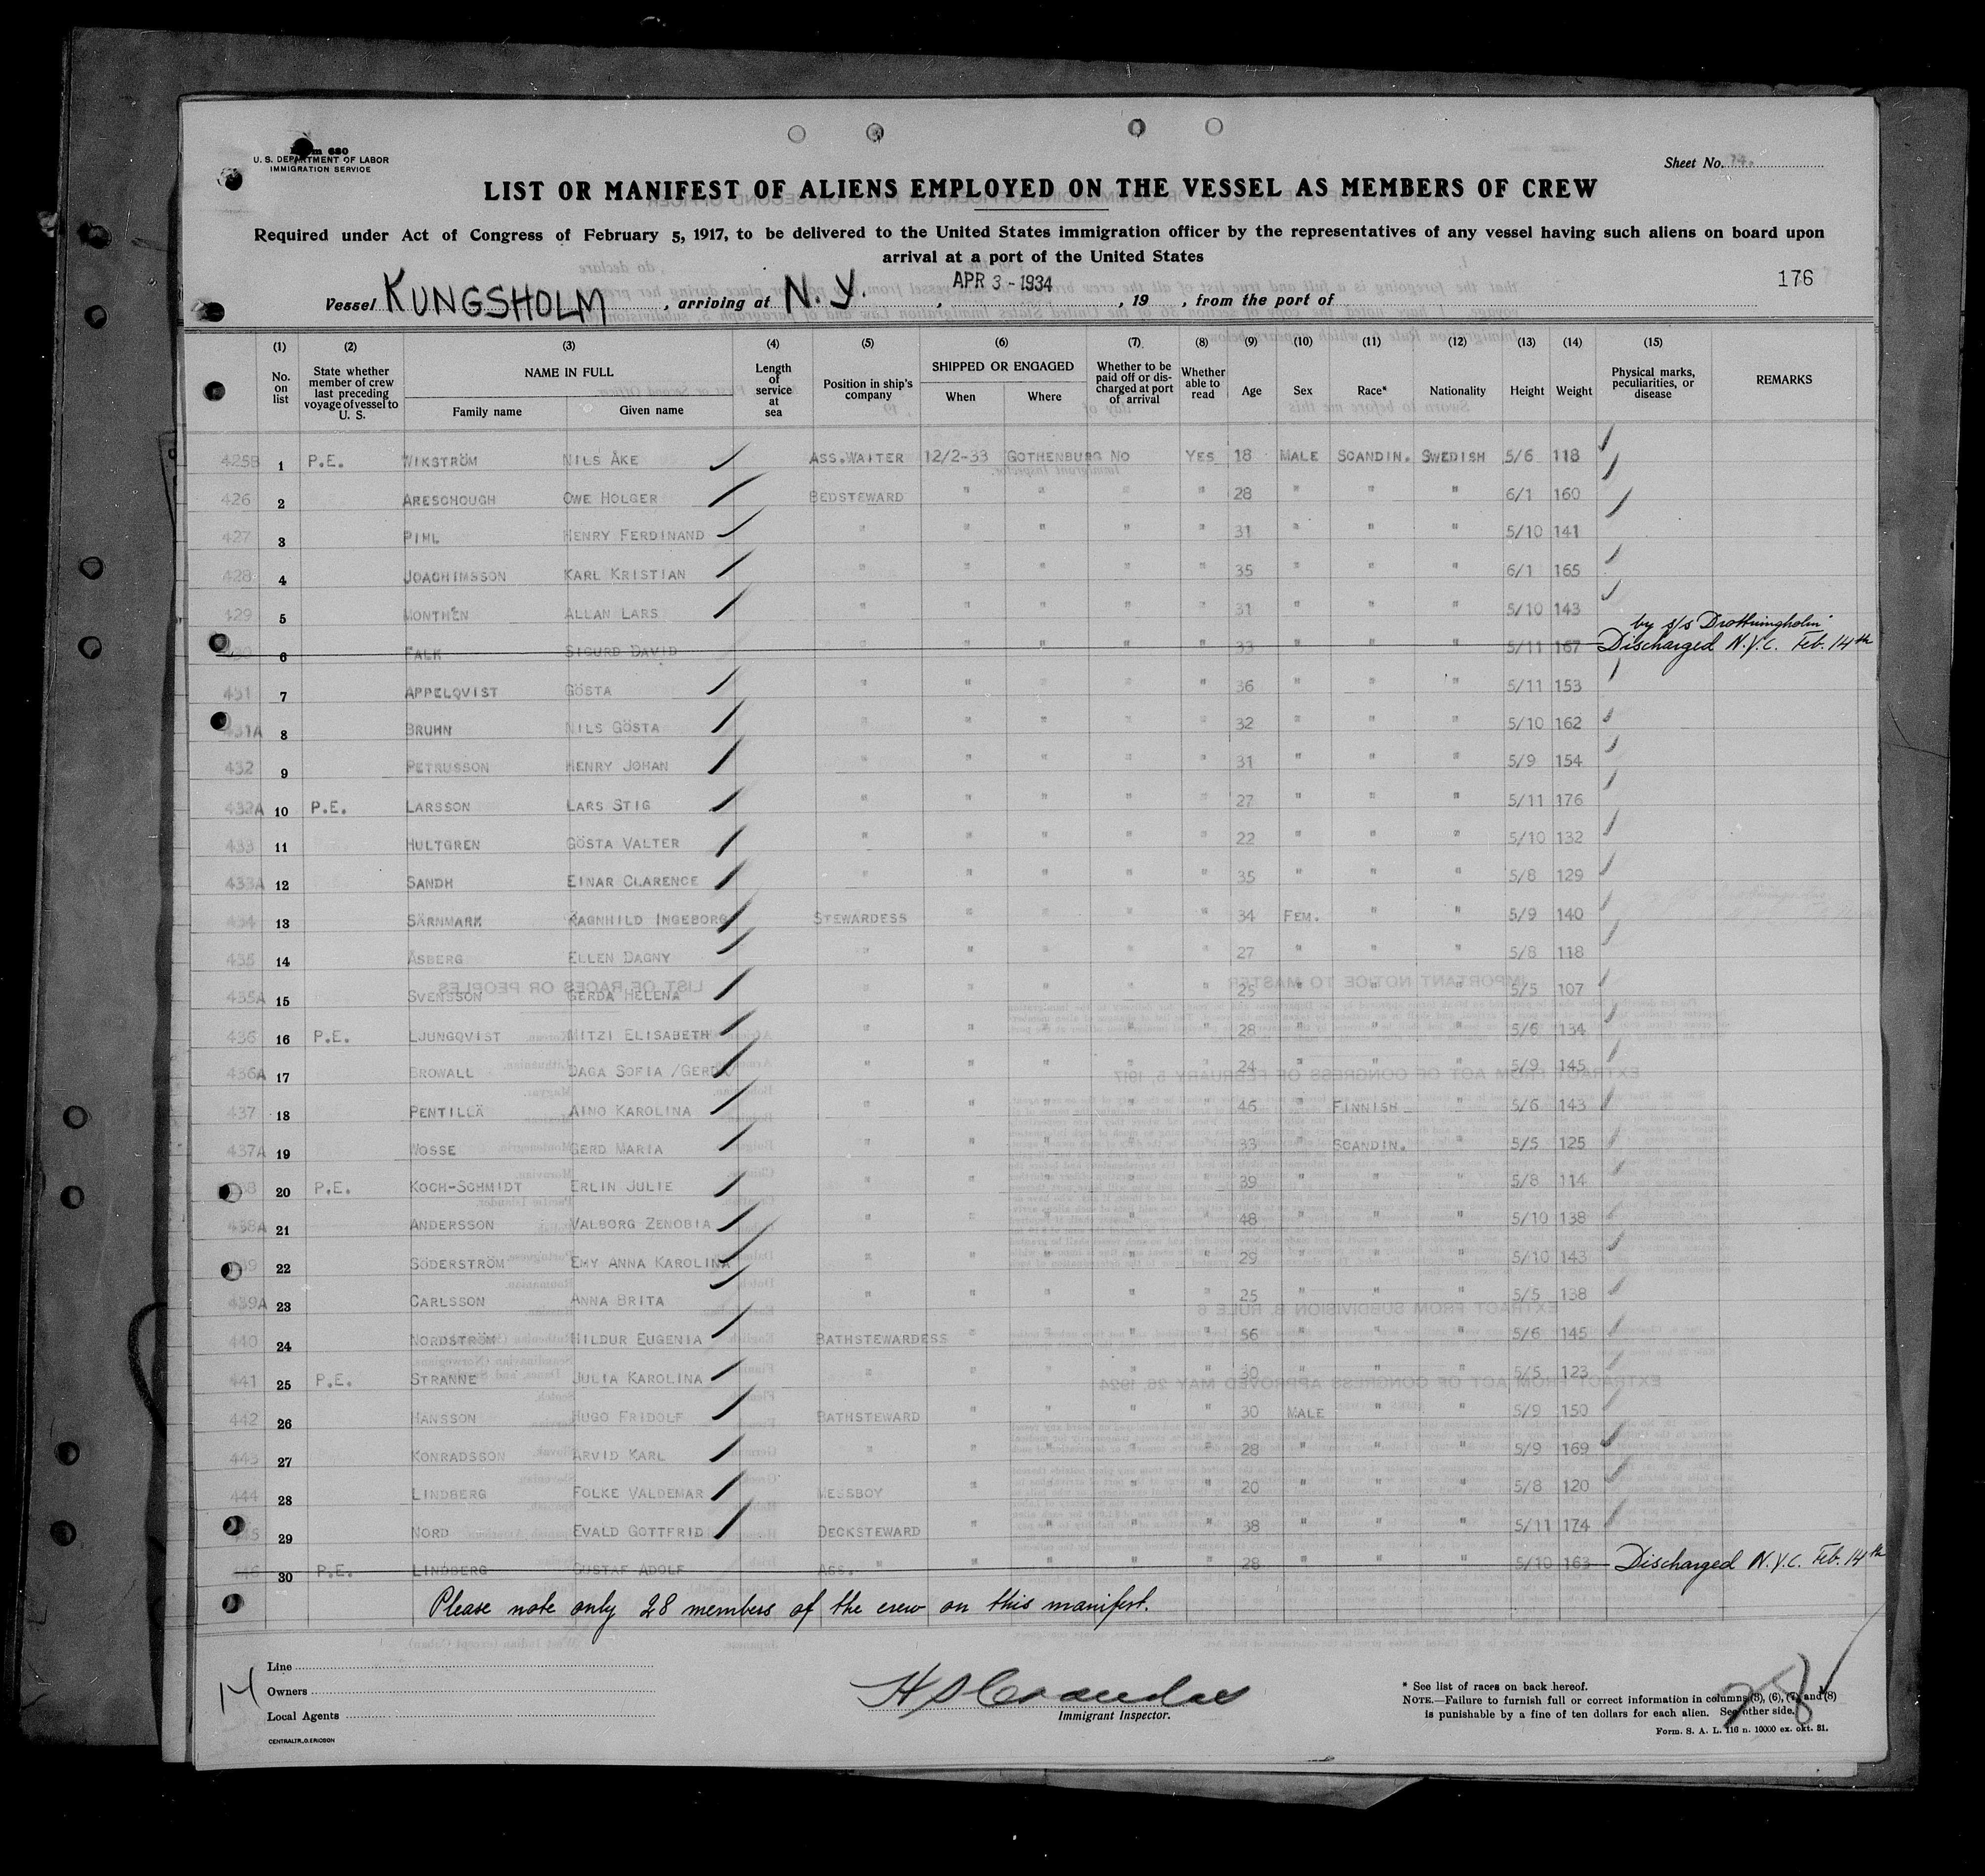 Form 680
U. S. DEPARTMENT OF LABOR
IMMIGRATION SERVICE
Sheet No. 14.
LIST OR MANIFEST OF ALIENS EMPLOYED ON THE VESSEL AS MEMBERS OF CREW
Required under Act of Congress of February 5, 1917, to be delivered to the United States immigration officer by the representatives of any vessel having such aliens on board upon
arrival at a port of the United States
Vessel KUNGSHOLM, arriving at N. Y., APR 3 - 1934, 19 , from the port of 176
(1) (2) (3) (4) (5) (6) (7) (8) (9) (10) (11) (12) (13) (14) (15)
No. on list State whether member of crew last preceding voyage of vessel to U. S. NAME IN FULL Family name Given name Length of service at sea Position in ship's company SHIPPED OR ENGAGED When Where Whether to be paid off or discharged at port of arrival Whether able to read Age Sex Race* Nationality Height Weight Physical marks, peculiarities, or disease REMARKS
425B 1 P.E. WIKSTRÖM NILS ÅKE ASS.WAITER 12/2-33 GOTHENBURG NO YES 18 MALE SCANDIN. SWEDISH 5/6 118
426 2 ARESCHOUGH OWE HOLGER BEDSTEWARD " " " " 28 " " " 6/1 160
427 3 PIHL HENRY FERDINAND " " " " " 31 " " " 5/10 141
428 4 JOACHIMSSON KARL KRISTIAN " " " " " 35 " " " 6/1 165
429 5 MONTHÉN ALLAN LARS " " " " " 31 " " " 5/10 143
by s/s Drottningholm
6 FALK SIGURD DAVID " " " " " 33 " " " 5/11 167 Discharged N.Y.C. Feb. 14th
431 7 APPELQVIST GÖSTA " " " " " 36 " " " 5/11 153
431A 8 BRUHN NILS GÖSTA " " " " " 32 " " " 5/10 162
432 9 PETRUSSON HENRY JOHAN " " " " " 31 " " " 5/9 154
432A 10 P.E. LARSSON LARS STIG " " " " " 27 " " " 5/11 176
433 11 HULTGREN GÖSTA VALTER " " " " " 22 " " " 5/10 132
433A 12 SANDH EINAR CLARENCE " " " " " 35 " " " 5/8 129
434 13 SÄRNMARK RAGNHILD INGEBORG STEWARDESS " " " " 34 FEM. " " 5/9 140
435 14 ÅSBERG ELLEN DAGNY " " " " " 27 " " " 5/8 118
435A 15 SVENSSON GERDA HELENA " " " " " 25 " " " 5/5 107
436 16 P.E. LJUNGQVIST MITZI ELISABETH " " " " " 28 " " " 5/6 134
436A 17 BROWALL DAGA SOFIA /GERDA/ " " " " " 24 " " " 5/9 145
437 18 PENTILLÄ AINO KAROLINA " " " " " 46 " FINNISH " 5/6 143
437A 19 WOSSE GERD MARIA " " " " " 33 " SCANDIN. " 5/5 125
20 P.E. KOCH-SCHMIDT ERLIN JULIE " " " " " 39 " " " 5/8 114
438A 21 ANDERSSON VALBORG ZENOBIA " " " " " 48 " " " 5/10 138
22 SÖDERSTRÖM EMY ANNA KAROLINA " " " " " 29 " " " 5/10 143
439A 23 CARLSSON ANNA BRITA " " " " " 25 " " " 5/5 138
440 24 NORDSTRÖM HILDUR EUGENIA BATHSTEWARDESS " " " " 56 " " " 5/6 145
441 25 P.E. STRANNE JULIA KAROLINA " " " " " 30 " " " 5/5 123
442 26 HANSSON HUGO FRIDOLF BATHSTEWARD " " " " 30 MALE " " 5/9 150
443 27 KONRADSSON ARVID KARL " " " " " 28 " " " 5/9 169
444 28 LINDBERG FOLKE VALDEMAR MESSBOY " " " " 20 " " " 5/8 120
29 NORD EVALD GOTTFRID DECKSTEWARD " " " " 38 " " " 5/11 174
446 30 P.E. LINDBERG GUSTAF ADOLF ASS. " " " " " 28 " " " 5/10 163 Discharged N.Y.C. Feb. 14th
Please note only 28 members of the crew on this manifest.
Line
Owners
Local Agents
14
CENTRALTR., G. ERICSON
Immigrant Inspector.
* See list of races on back hereof.
NOTE.—Failure to furnish full or correct information in columns (3), (6), (7) and (8)
is punishable by a fine of ten dollars for each alien. See other side.
28
Form. S. A. L. 116 n. 10000 ex. okt. 31.